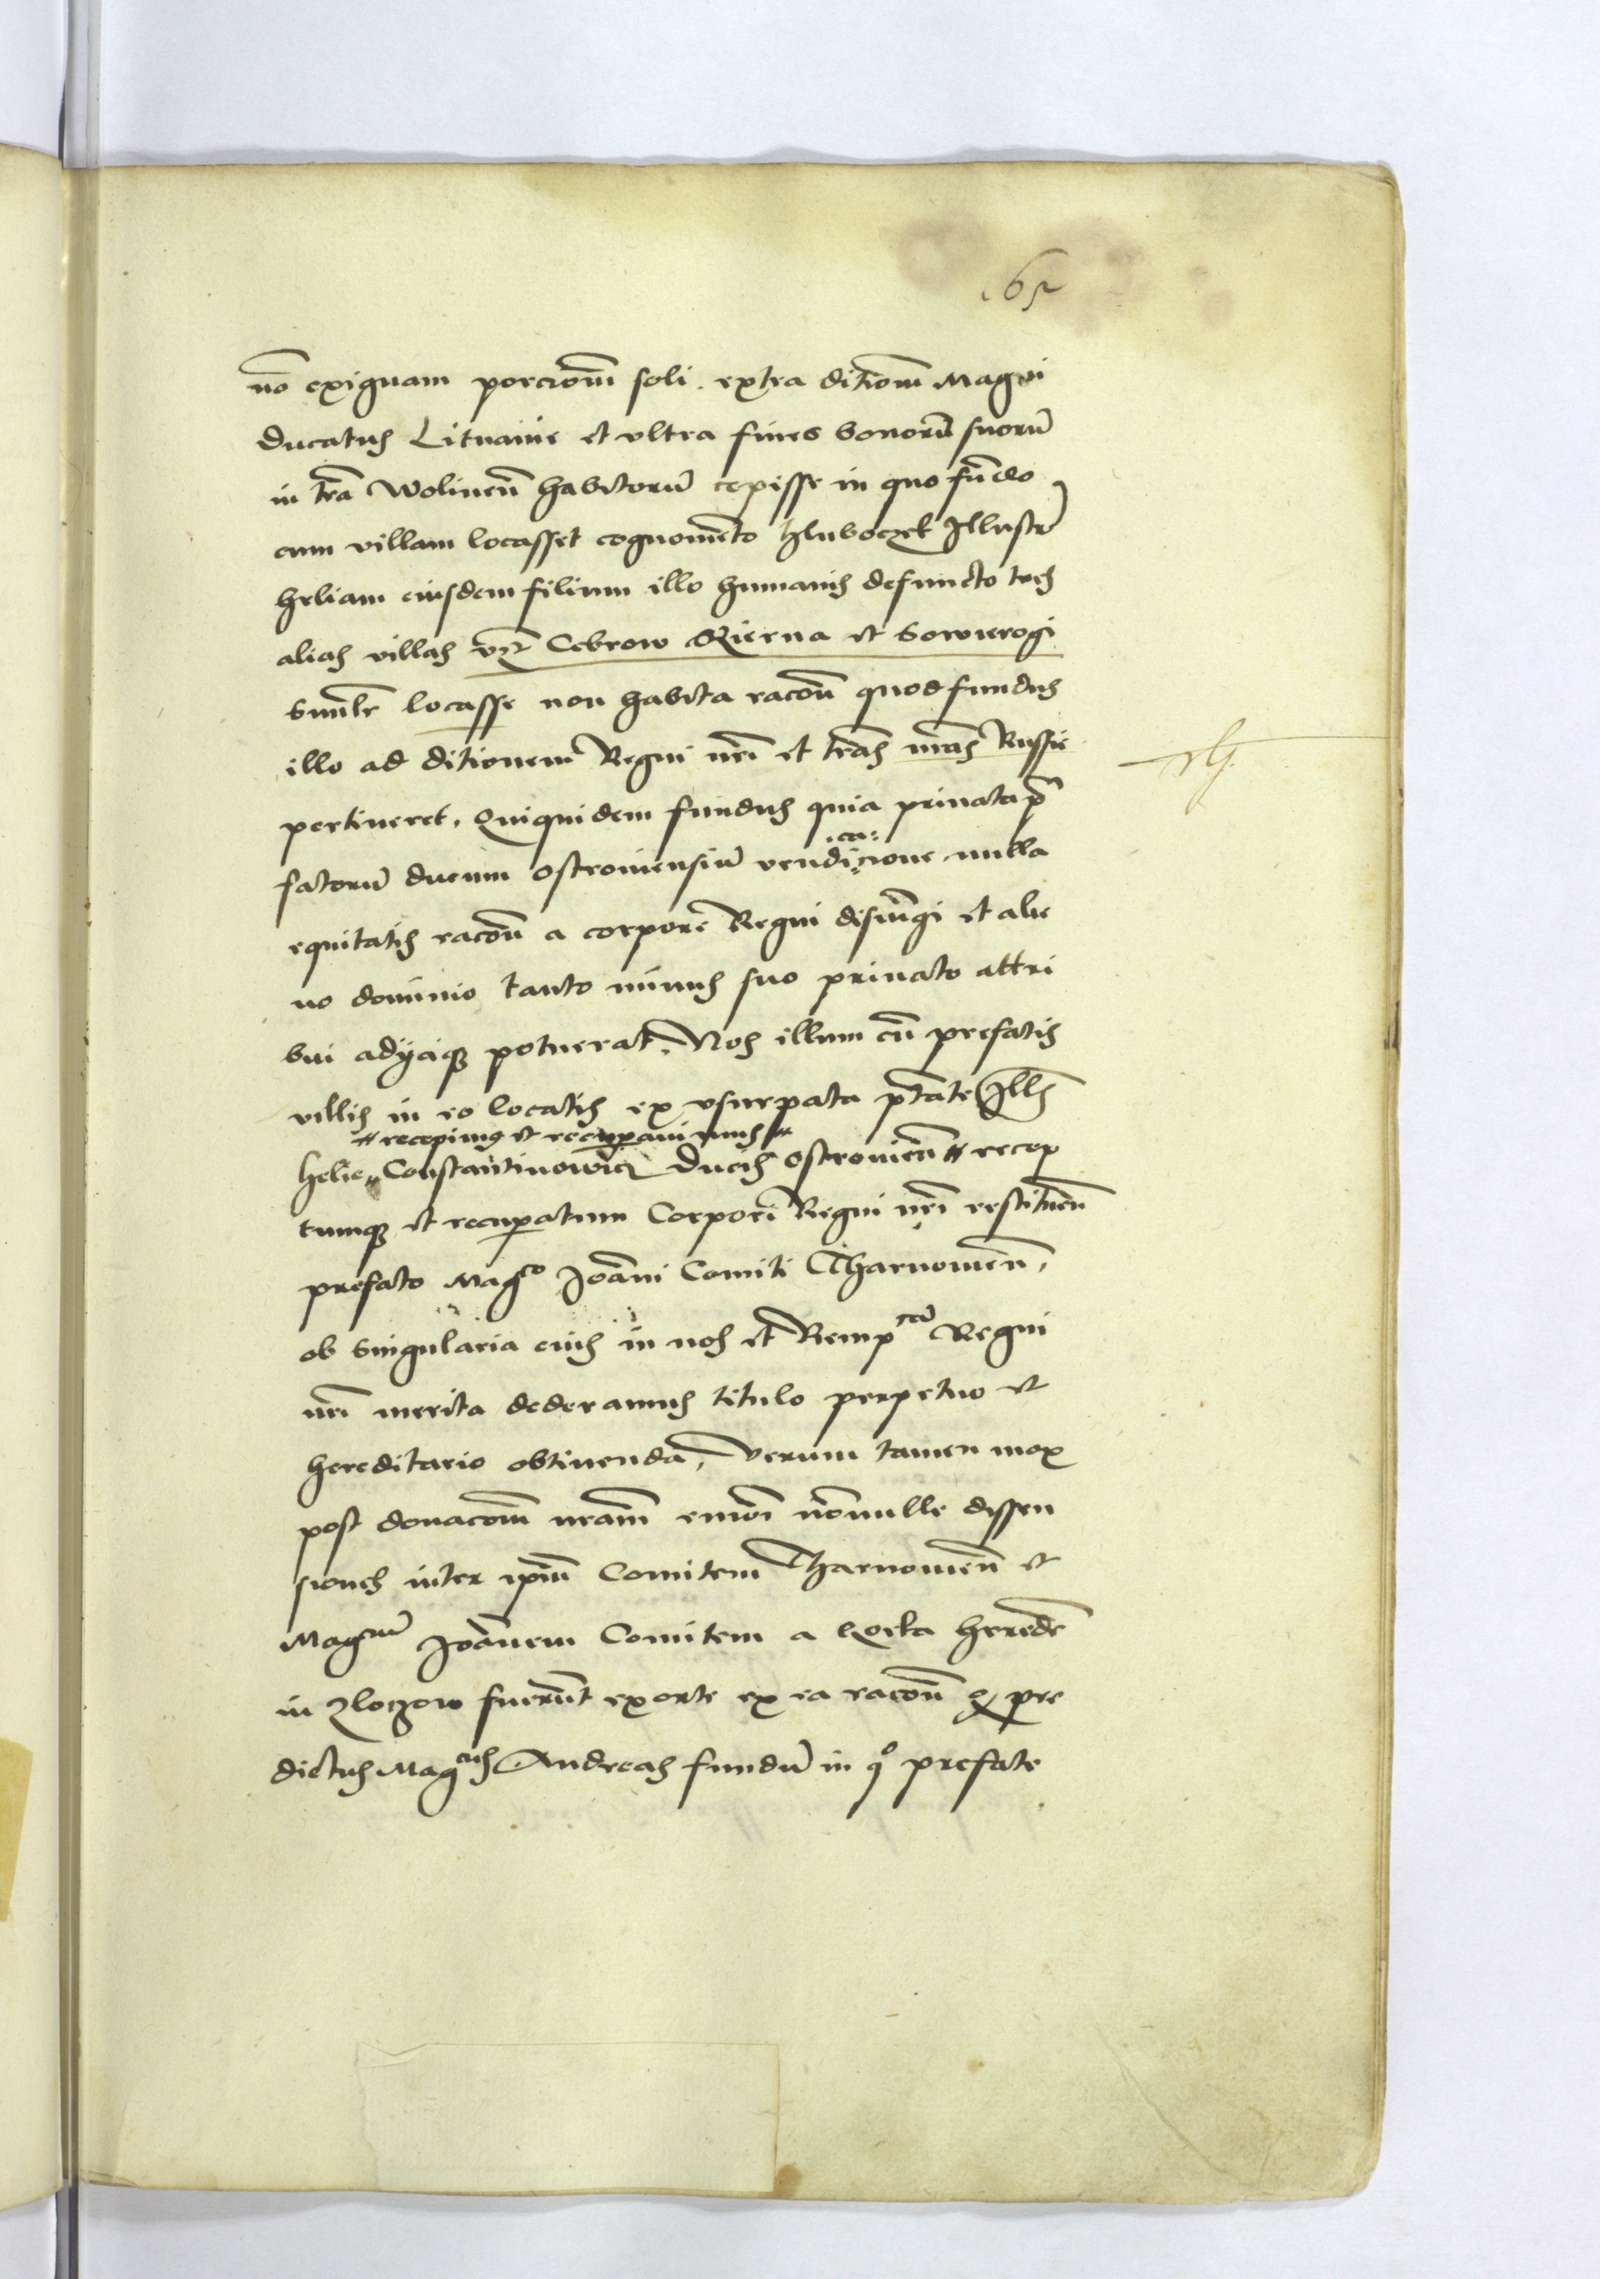 65
no exiguam porciom soli extra ditiom Magni
Ducatus Lituanie et ultra fines bonoru suoru
in tra Wolinen habitoru cepisse in quo fundo
cum villam locasset cognomento Hluboczek Illustre
heliam eiusdem filium illo humanis defuncto tres
alias villas vz Cebrow Kierna et Worwierogi
simile locasse non habita racoe quod fundus
ille ad ditionem Regni nri et tras nras Russie
pertineret, Quiquidem fundus quia privata p
fatoru ducum Ostroviensiu vendicacione nulla
equitatis racoe a corpore Regni disiungi et alie
no dominio tanto minus suo privato attri
bui adijciq potuerat, Nos illum cu prefatis
villis in eo locatis ex usurpata ptate Ills
recepimus et recuperavimus
helie Constantinowicz Ducis Ostrovien recep
tumq et recuperatum Corpori Regni nri restituen
prefato Magco Joanni Comiti Tharnovien,
ob singularia eius in nos et Rempcam Regni
nri merita dederamus titulo perpetuo et
hereditario obtinenda, Verum tamen mox
post donacom nram nonnulle dissen
siones inter ipm Comitem Tharnovien et
Magcum Joannem Comitem a herede
in Zloczow fuerunt exorte ex ea racoe q pre
dictus Magcus Andreas fundu in qo prefate